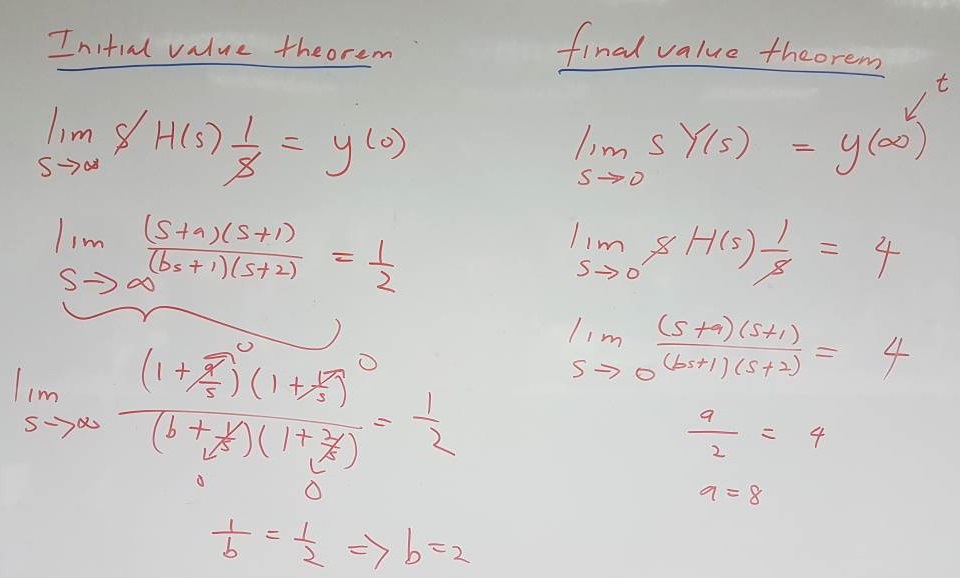 Initial value theorem
lim s→∞ s H(s) 1/s = y(0)
lim s→∞ (s+a)(s+1)/(bs+1)(s+2) = 1/2
lim s→∞ (1+a/s)(1+1/s)/(b+1/s)(1+2/s) = 1/2
0 0
0 0
1/b = 1/2 => b=2
final value theorem
t
lim s→0 s Y(s) = y(∞)
lim s→0 s H(s) 1/s = 4
lim s→0 (s+a)(s+1)/(bs+1)(s+2) = 4
a/2 = 4
a=8